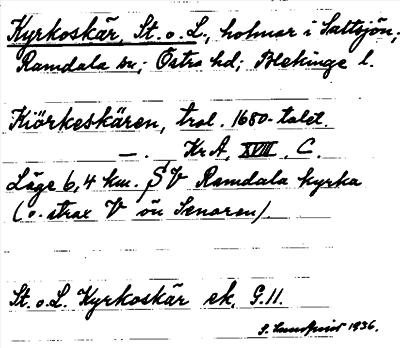 Kyrkoskär, St. o. L., holmar i Saltsjön;
Ramdala sn; Östra hd; Blekinge l.
Kiörkeskären, trol. 1680-talet.
—. Kr.A, XVIII. C.
Läge 6,4 km. SV Ramdala kyrka
(o. strax V ön Senoren).
St. o. L. Kyrkoskär ek. G.11.
1936.